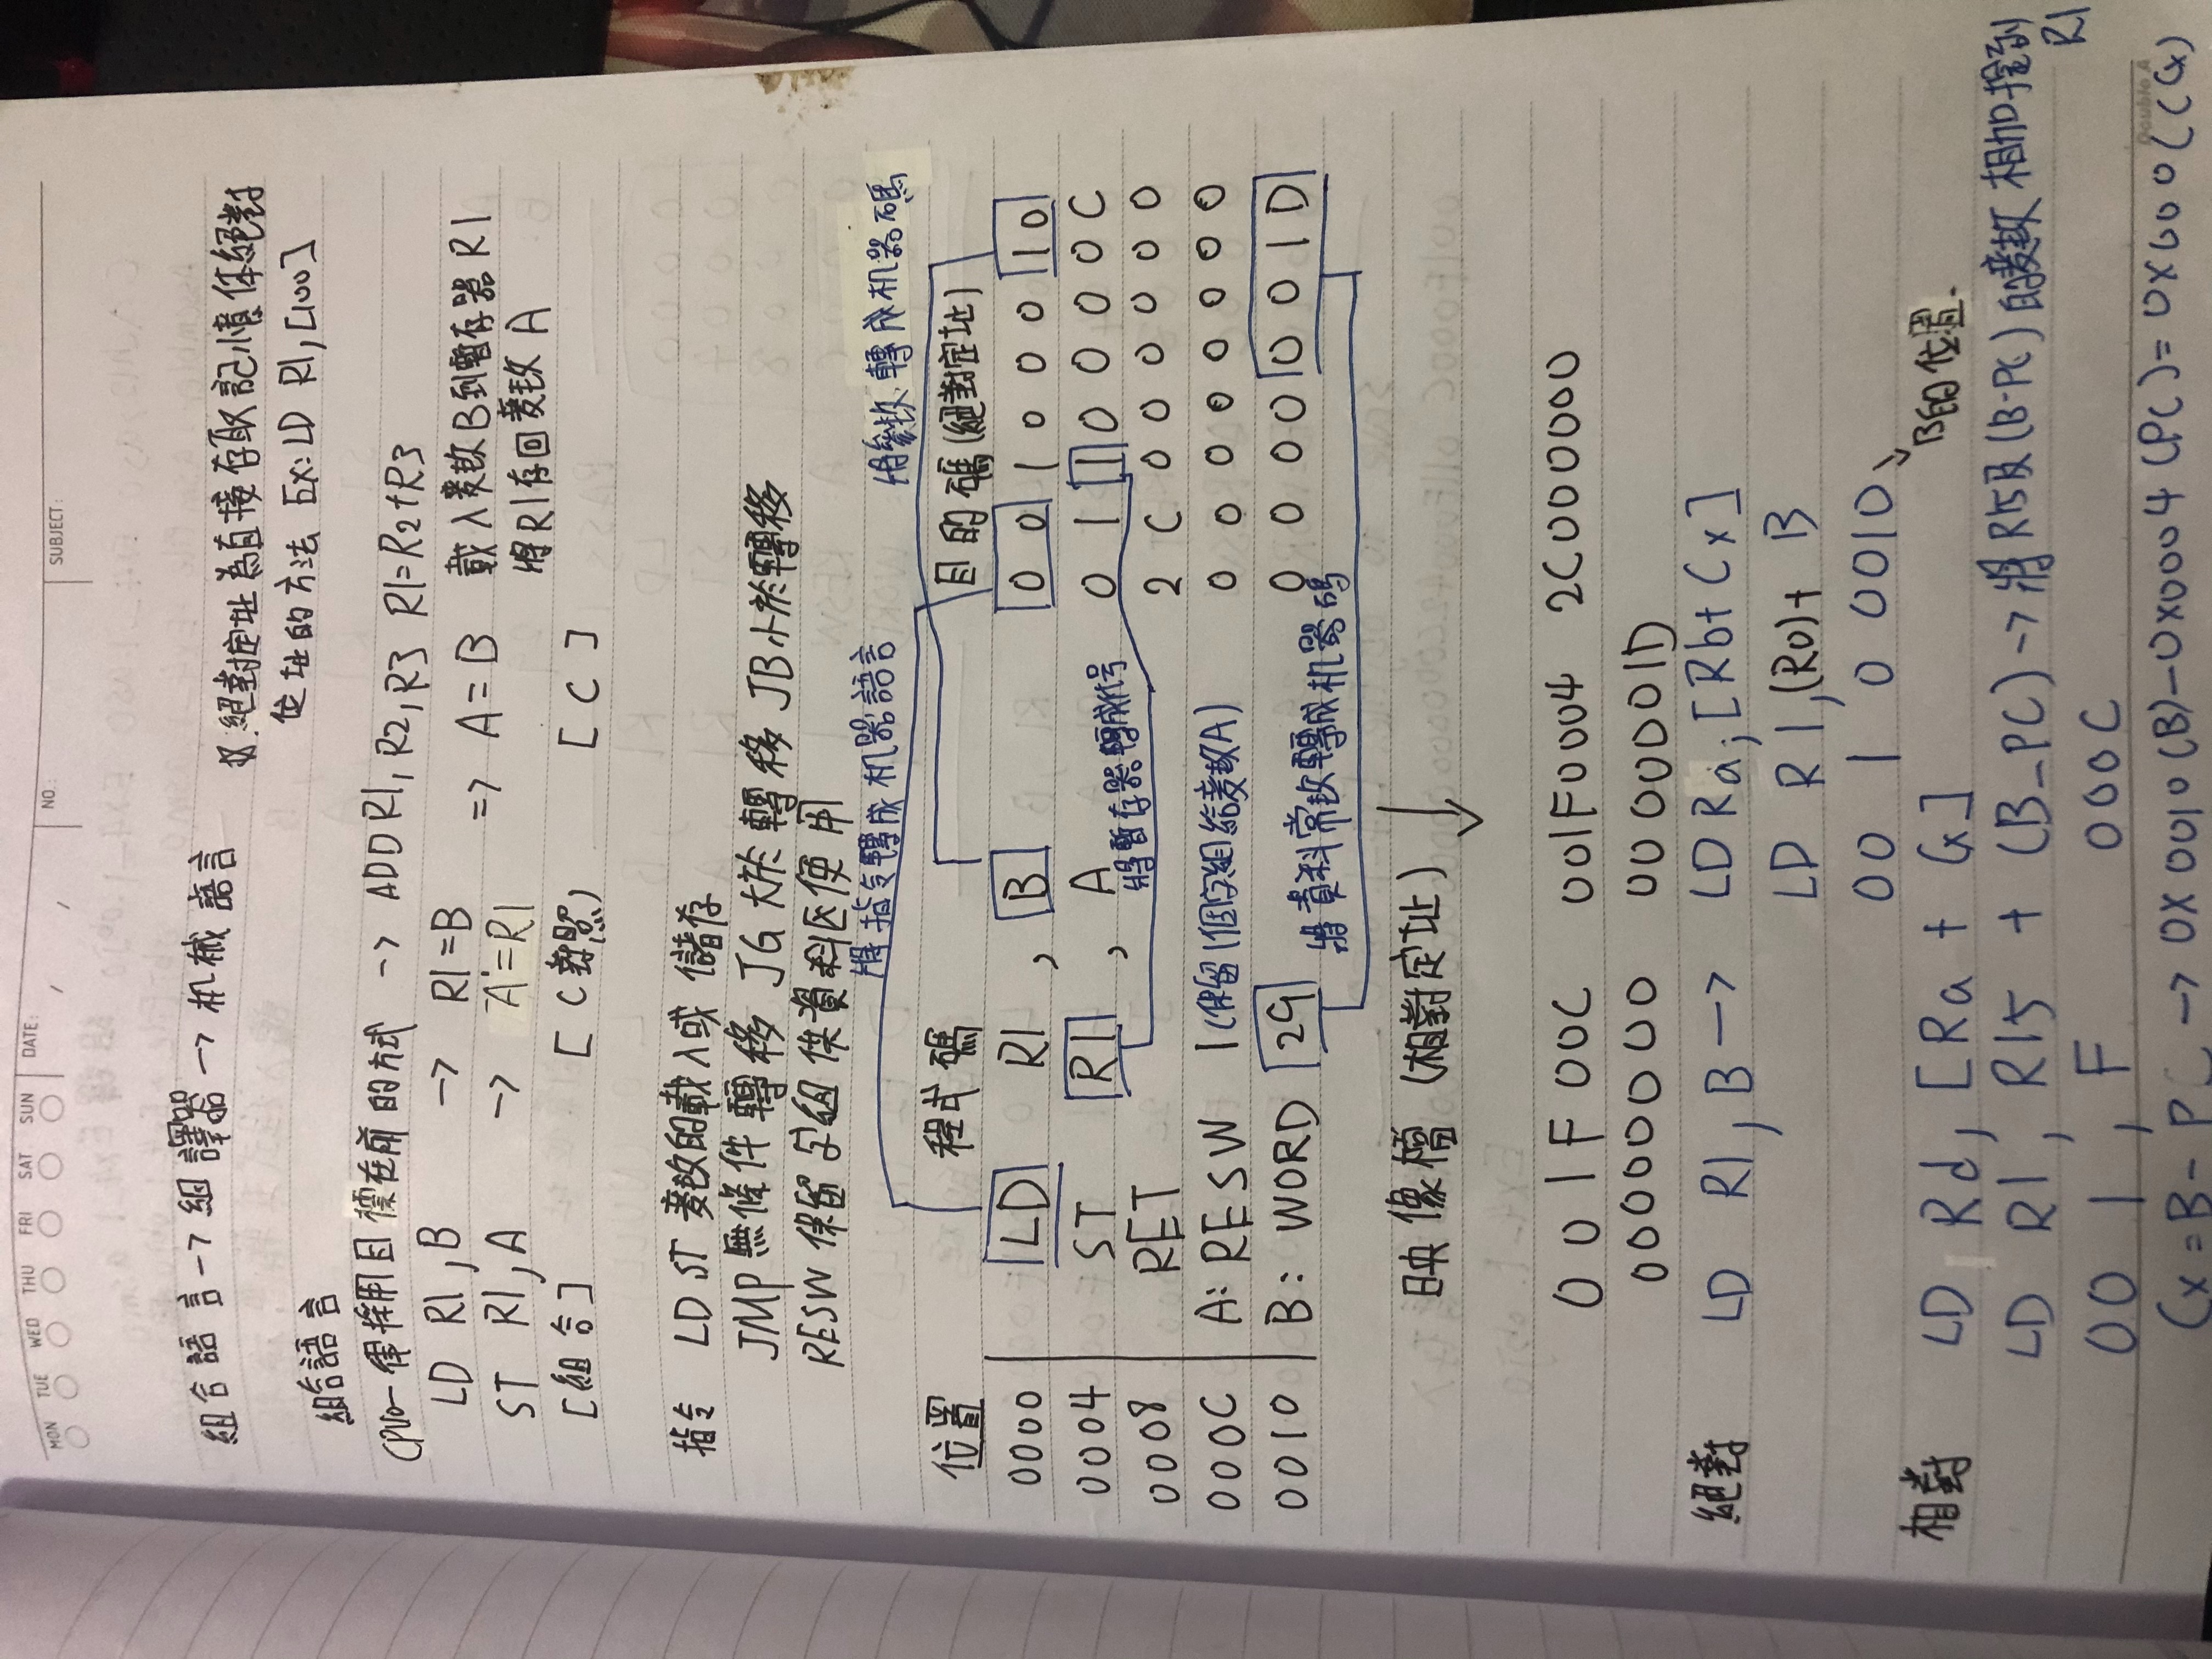 MON TUE WED THU FRI SAT SUN DATE: / / NO.: SUBJECT:
組合語言→組譯器→机械語言
絕對定址為直接存取記憶体絕對
位址的方法 EX: LD R1, [100]
組合語言
CPU0一律採用目標在前的方式 → ADD R1, R2, R3 R1=R2+R3
LD R1, B → R1=B => A=B 載入变数B到暫存器R1
ST R1, A → A=R1 將R1存回变数A
[組合] [C對照) [C]
指令 LD ST 变数的載入或儲存
JMP無條件轉移 JG大於轉移 JB小於轉移
RESW保留字組供資料区使用
將指令轉成机器語言 將參数轉成机器碼
位置 程式碼 目的碼(絕對定址)
0000 LD R1, B 00100010
0004 ST R1, A 0110000C
將暫存器轉成代号
0008 RET 2C000000
000C A: RESW 1(保留1個字組給变数A) 00000000
0010 B: WORD 29 0000001D
將資料常数轉成机器碼
映像檔 (相對定址) ↓
001F00C 001F0004 2C000000
00000000 0000001D
絕對 LD R1, B → LD Ra, [Rb+Cx]
LD R1, (R0)+ B
00 1 0 0010
B的位置.
相對 LD Rd, [Ra + Cx]
LD R1, R15 + (B-PC) → 將R15及(B-PC)的变数相加擺到
R1
00 1, F 000C
Double A
Cx=B-PC → 0X0010(B)-0X0004(PC)=0X000C(Cx)